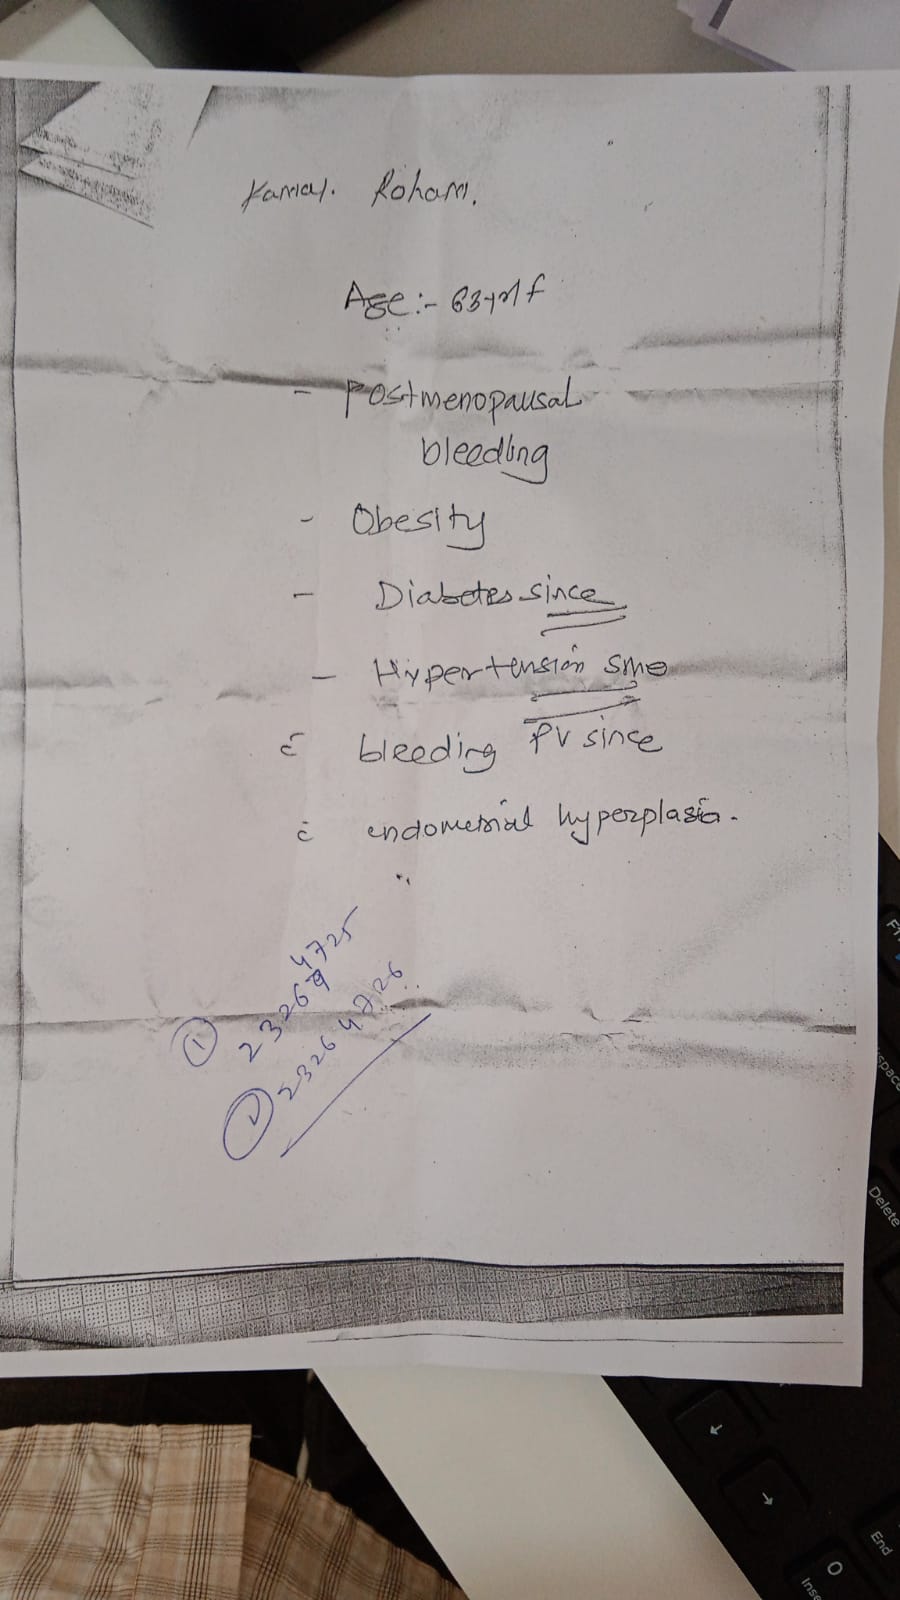 Kamal. Roham.
Age:- 63yr/f
- Postmenopausal
bleeding
- Obesity
- Diabetes since
- Hypertension since
c̄ bleeding PV since
c̄ endometrial hyperplasia.
① 23264725
② 23264726
Delete
End
0